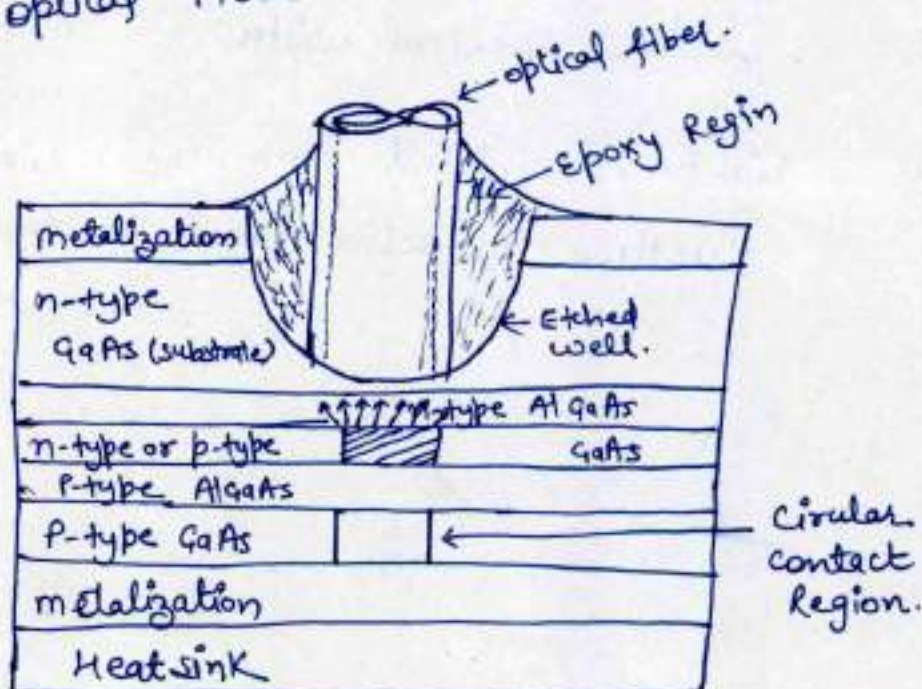 optical
optical fiber.
Epoxy Regin
metalization
n-type
GaAs (substrate)
Etched
well.
n-type AlGaAs
n-type or p-type
GaAs
P-type AlGaAs
P-type GaAs
Cirular
contact
Region.
metalization
Heat sink